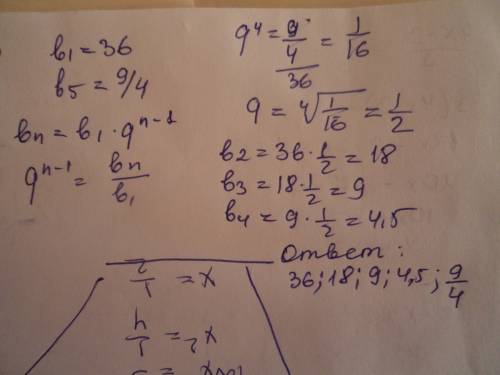 b₁ = 36
b₅ = 9/4
bₙ = b₁ · qⁿ⁻¹
qⁿ⁻¹ = bₙ/b₁
q⁴ = (9/4)/36 = 1/16
q = ⁴√(1/16) = 1/2
b₂ = 36 · 1/2 = 18
b₃ = 18 · 1/2 = 9
b₄ = 9 · 1/2 = 4,5
Ответ:
36; 18; 9; 4,5; 9/4